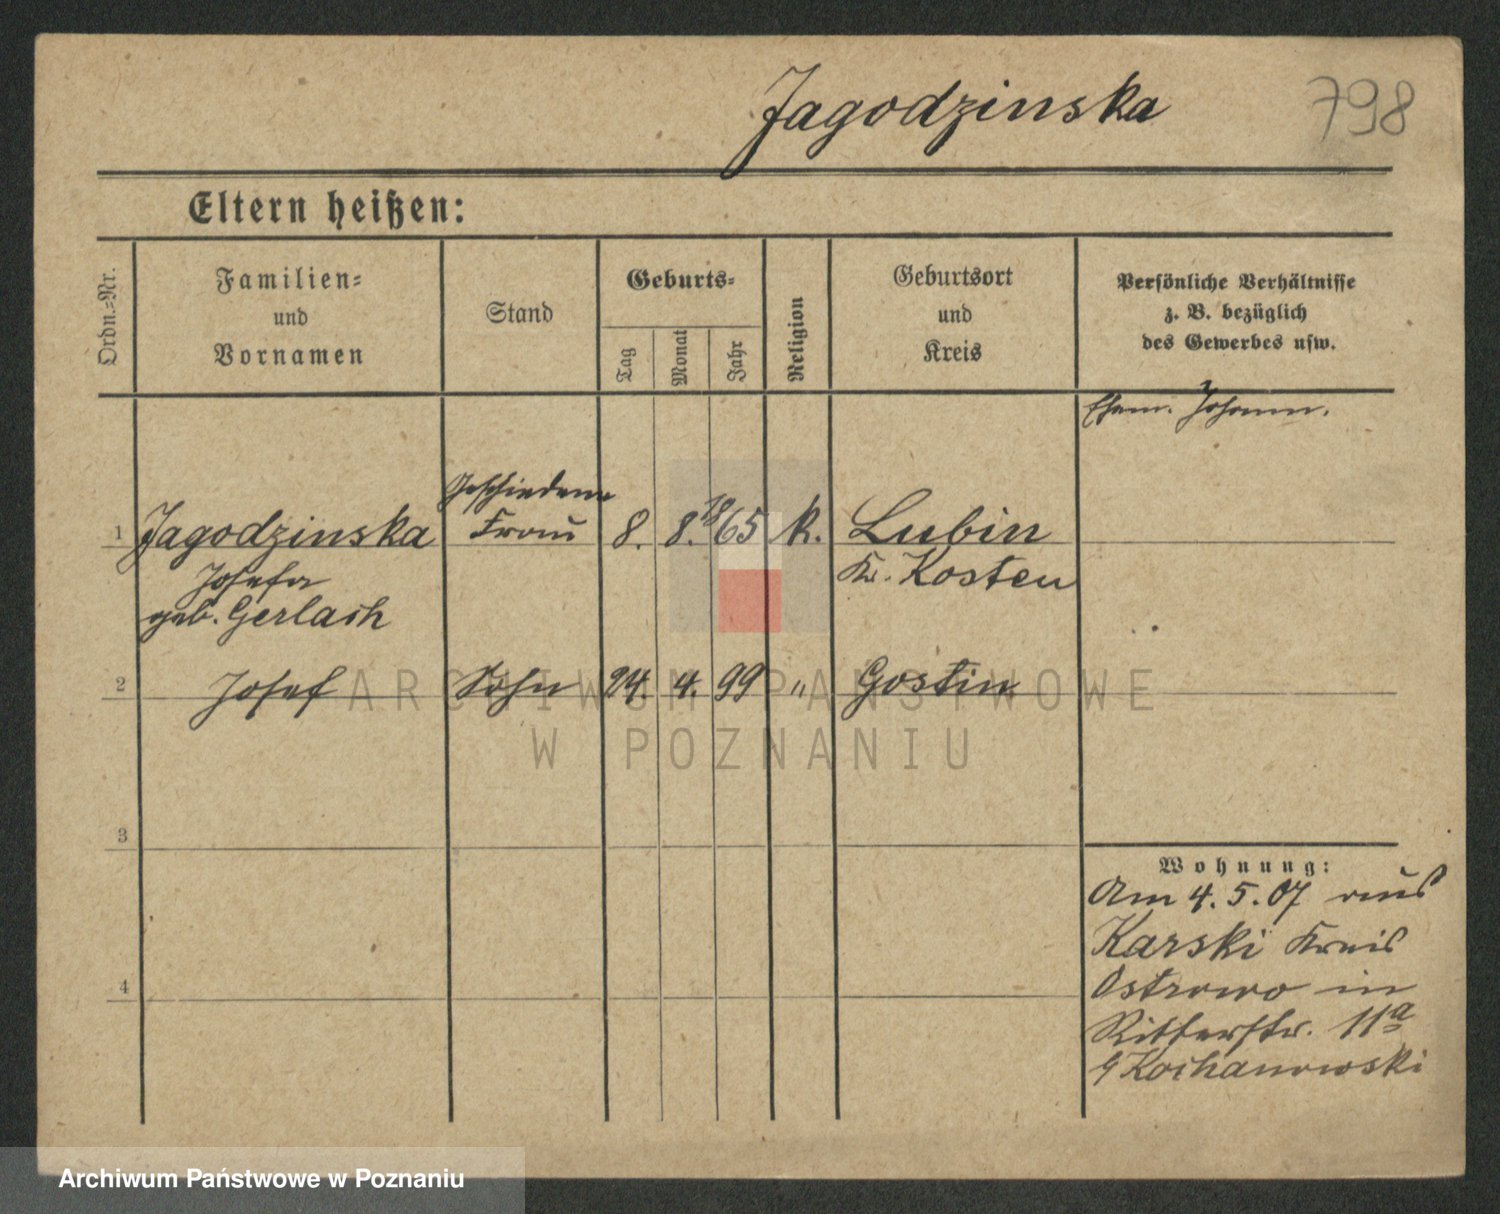 Jagodzinska
798
Eltern heißen:
Ordn.-Nr.
Familien-
und
Vornamen
Stand
Geburts-
Tag
Monat
Jahr
Religion
Geburtsort
und
Kreis
Persönliche Verhältnisse
z. B. bezüglich
des Gewerbes usw.
Ehem. Johann.
1 Jagodzinska
Josefa
geb. Gerlach
Geschiedene
Frau
8. 8. 1865 k.
Lubin
Kr. Kosten
2 Josef Sohn 24. 4. 99 " Gostin
3
4
Wohnung:
Am 4. 5. 07 aus
Karski Kreis
Ostrowo in
Ritterstr. 11a
Kochanowski
ARCHIWUM PAŃSTWOWE
W POZNANIU
Archiwum Państwowe w Poznaniu